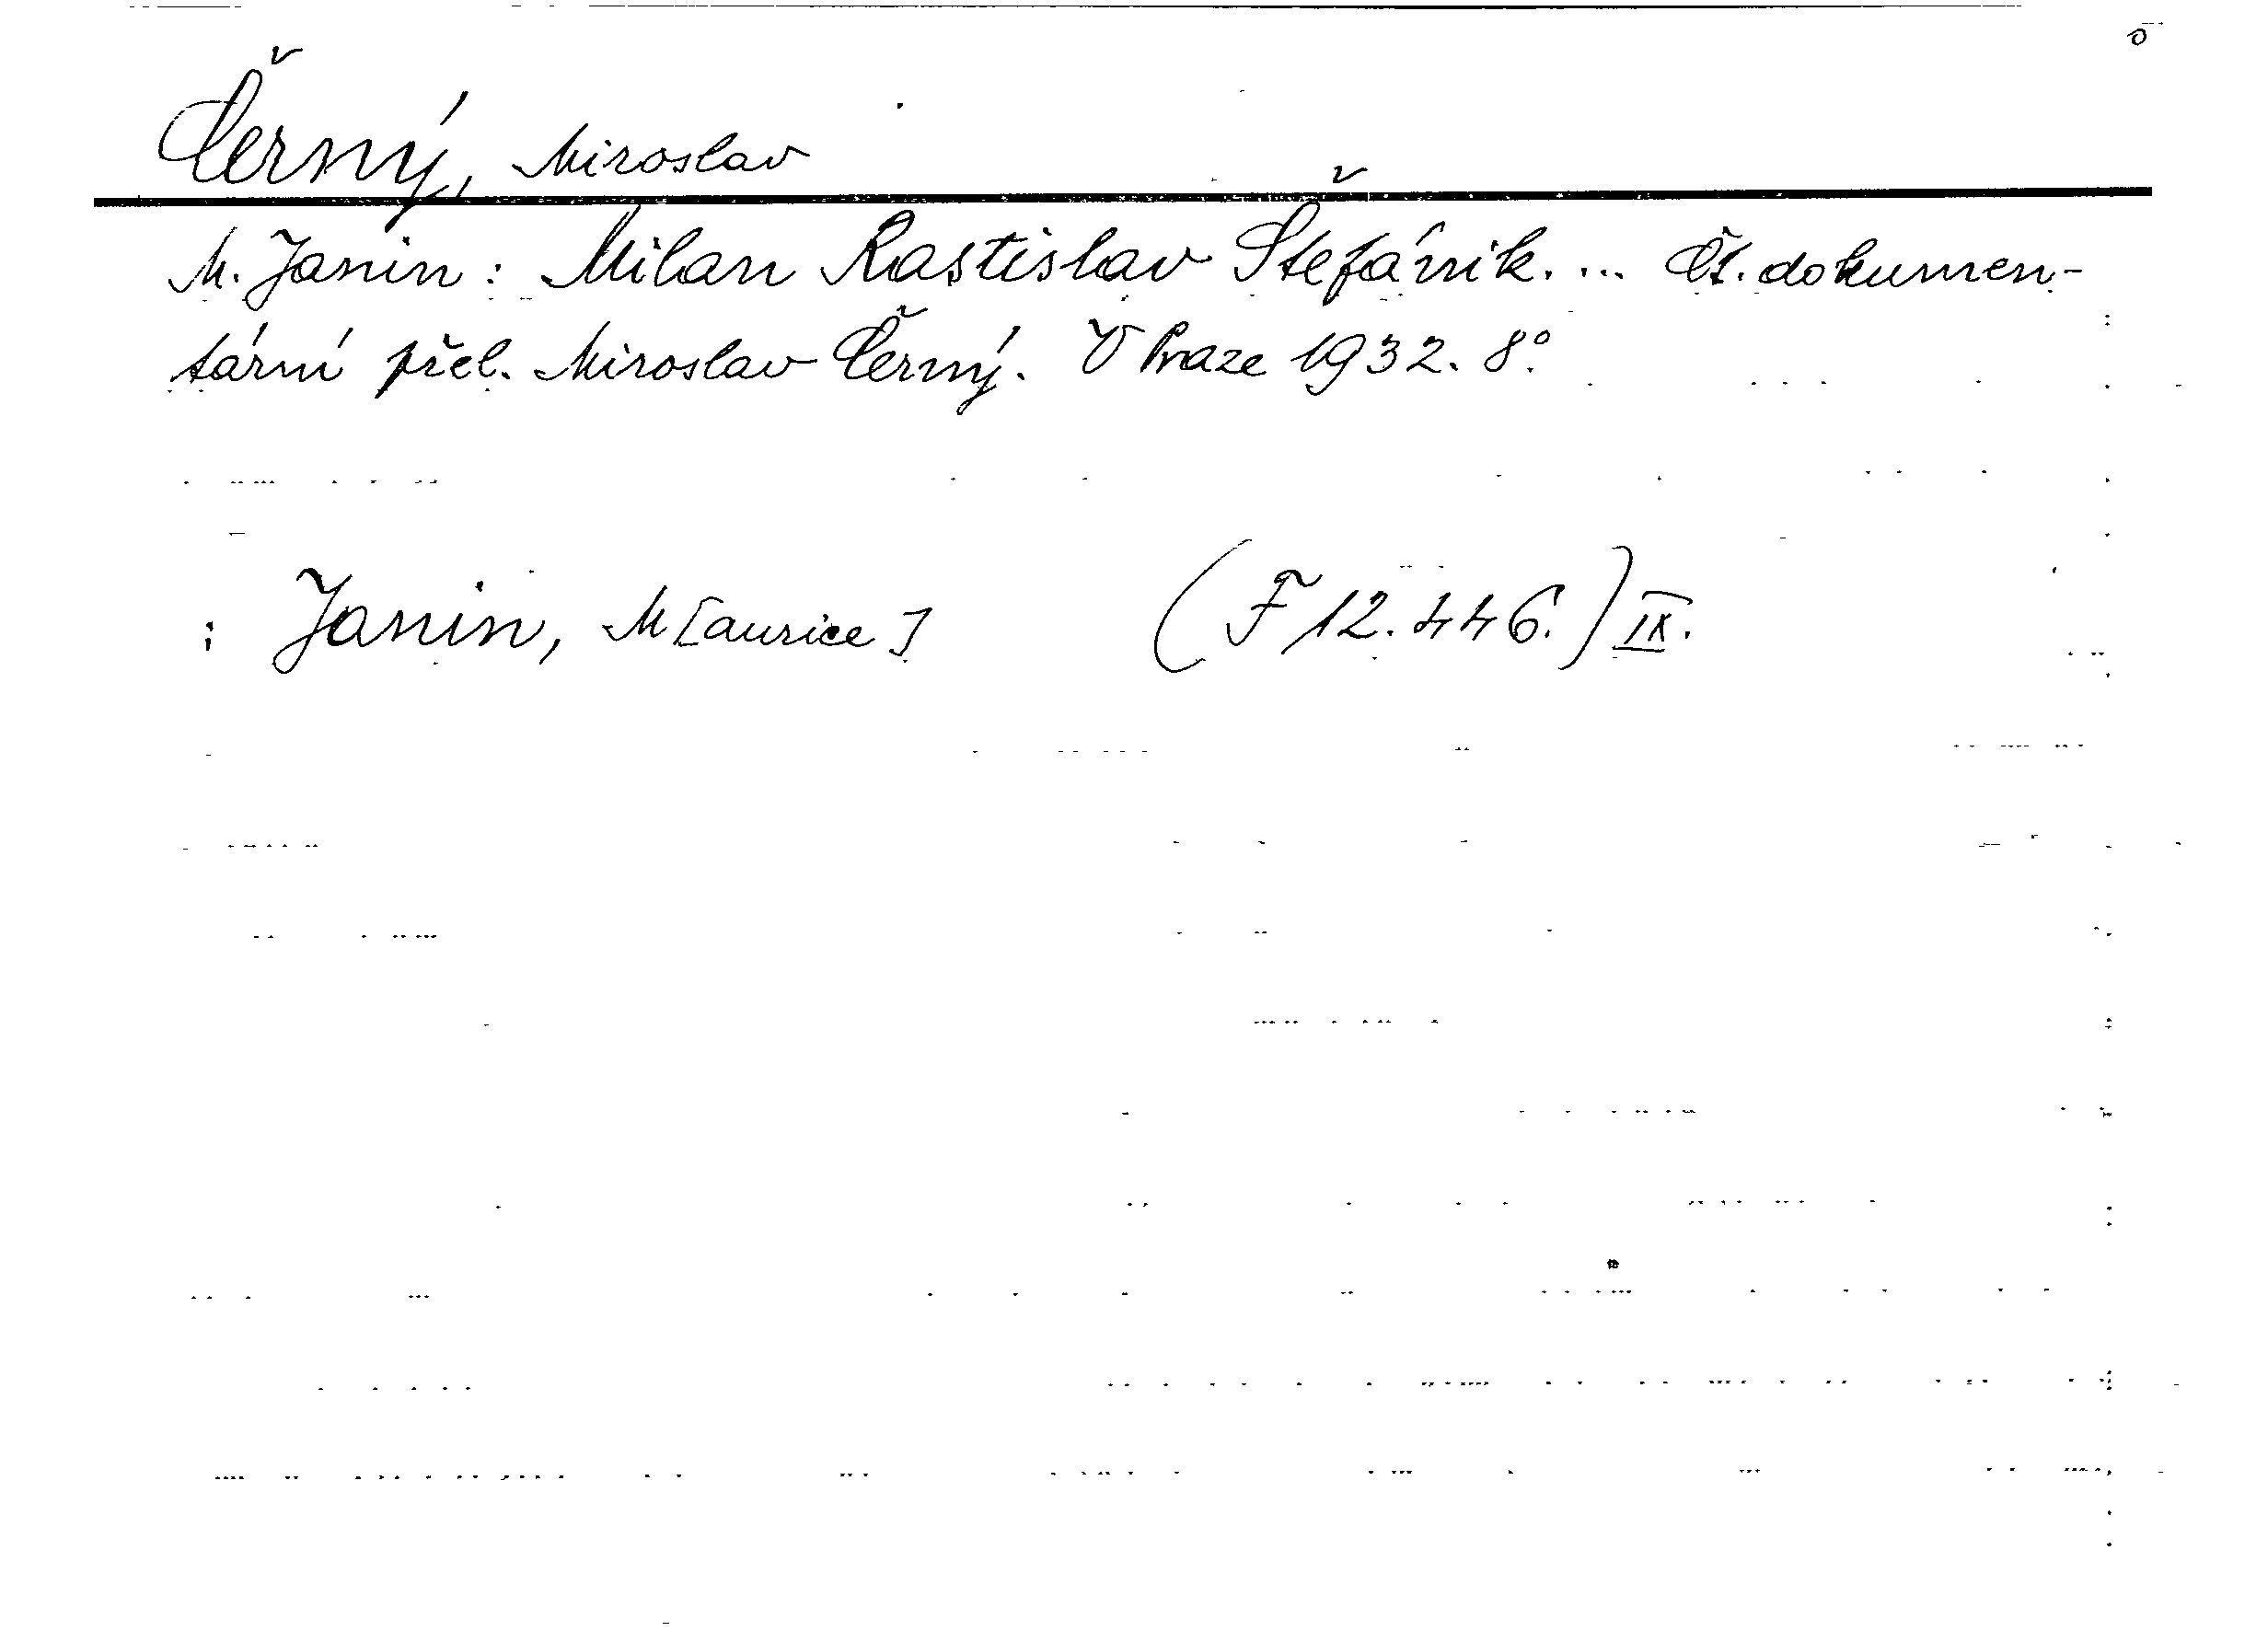 Černý, Miroslav
M. Janin: Milan Rastislav Štefánik. ... Čt. dokumen-
tární přel. Miroslav Černý. V Praze 1932. 8°.
: Janin, M[aurice] (F 12.446.) IX.